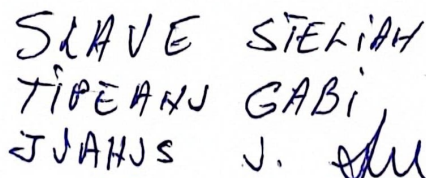 SLAVE STELIAN
TIPEANU GABI
IVANUS J.